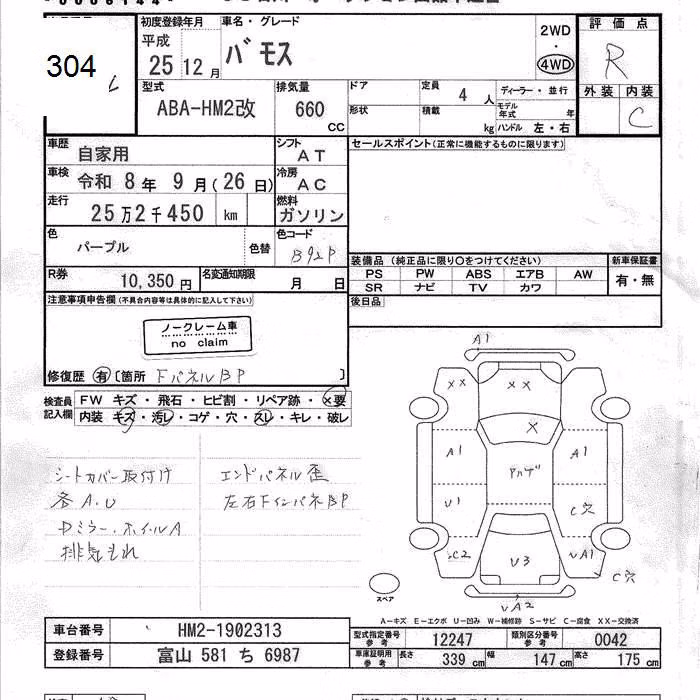 304
初度登録年月
平成
25 12 月
車名・グレード
バモス
2WD
・
4WD
評価点
R
外装 内装
C
型式
ABA-HM2改
排気量
660
CC
ドア
形状
定員
4 人
積載
kg
ディーラー・並行
モデル年式 年
ハンドル 左・右
車歴
自家用
シフト
AT
車検
令和 8 年 9 月 (26 日)
冷房
AC
走行
25 万 2 千 450 km
燃料
ガソリン
色
パープル
色替
色コード
B92P
R券
10,350 円
名変通知期限
月 日
セールスポイント(正常に機能するものに限ります)
装備品 (純正品に限り〇をつけてください)
PS PW ABS エアB AW
SR ナビ TV カワ
新車保証書
有・無
後日品
注意事項申告欄(不具合内容等は具体的に記入して下さい)
ノークレーム車
no claim
修復歴 有 〔箇所 FパネルBP 〕
検査員記入欄
FW キズ・飛石・ヒビ割・リペア跡・×要
内装 キズ・汚レ・コゲ・穴・スレ・キレ・破レ
シートカバー取付け
各A.U
Dミラー.ホイルA
排気もれ
エンドパネル歪
左右FインパネBP
A1
××
××
×
A1
アルゲ
A1
U1
C穴
C2
U3
A1
C穴
A2
スペア
A-キズ E-エクボ U-凹み W-補修跡 S-サビ C-腐食 XX-交換済
車台番号
HM2-1902313
登録番号
富山 581 ち 6987
型式指定番号 参考
12247
類別区分番号 参考
0042
車庫証明用 参考
長さ 339 cm
幅 147 cm
高さ 175 cm